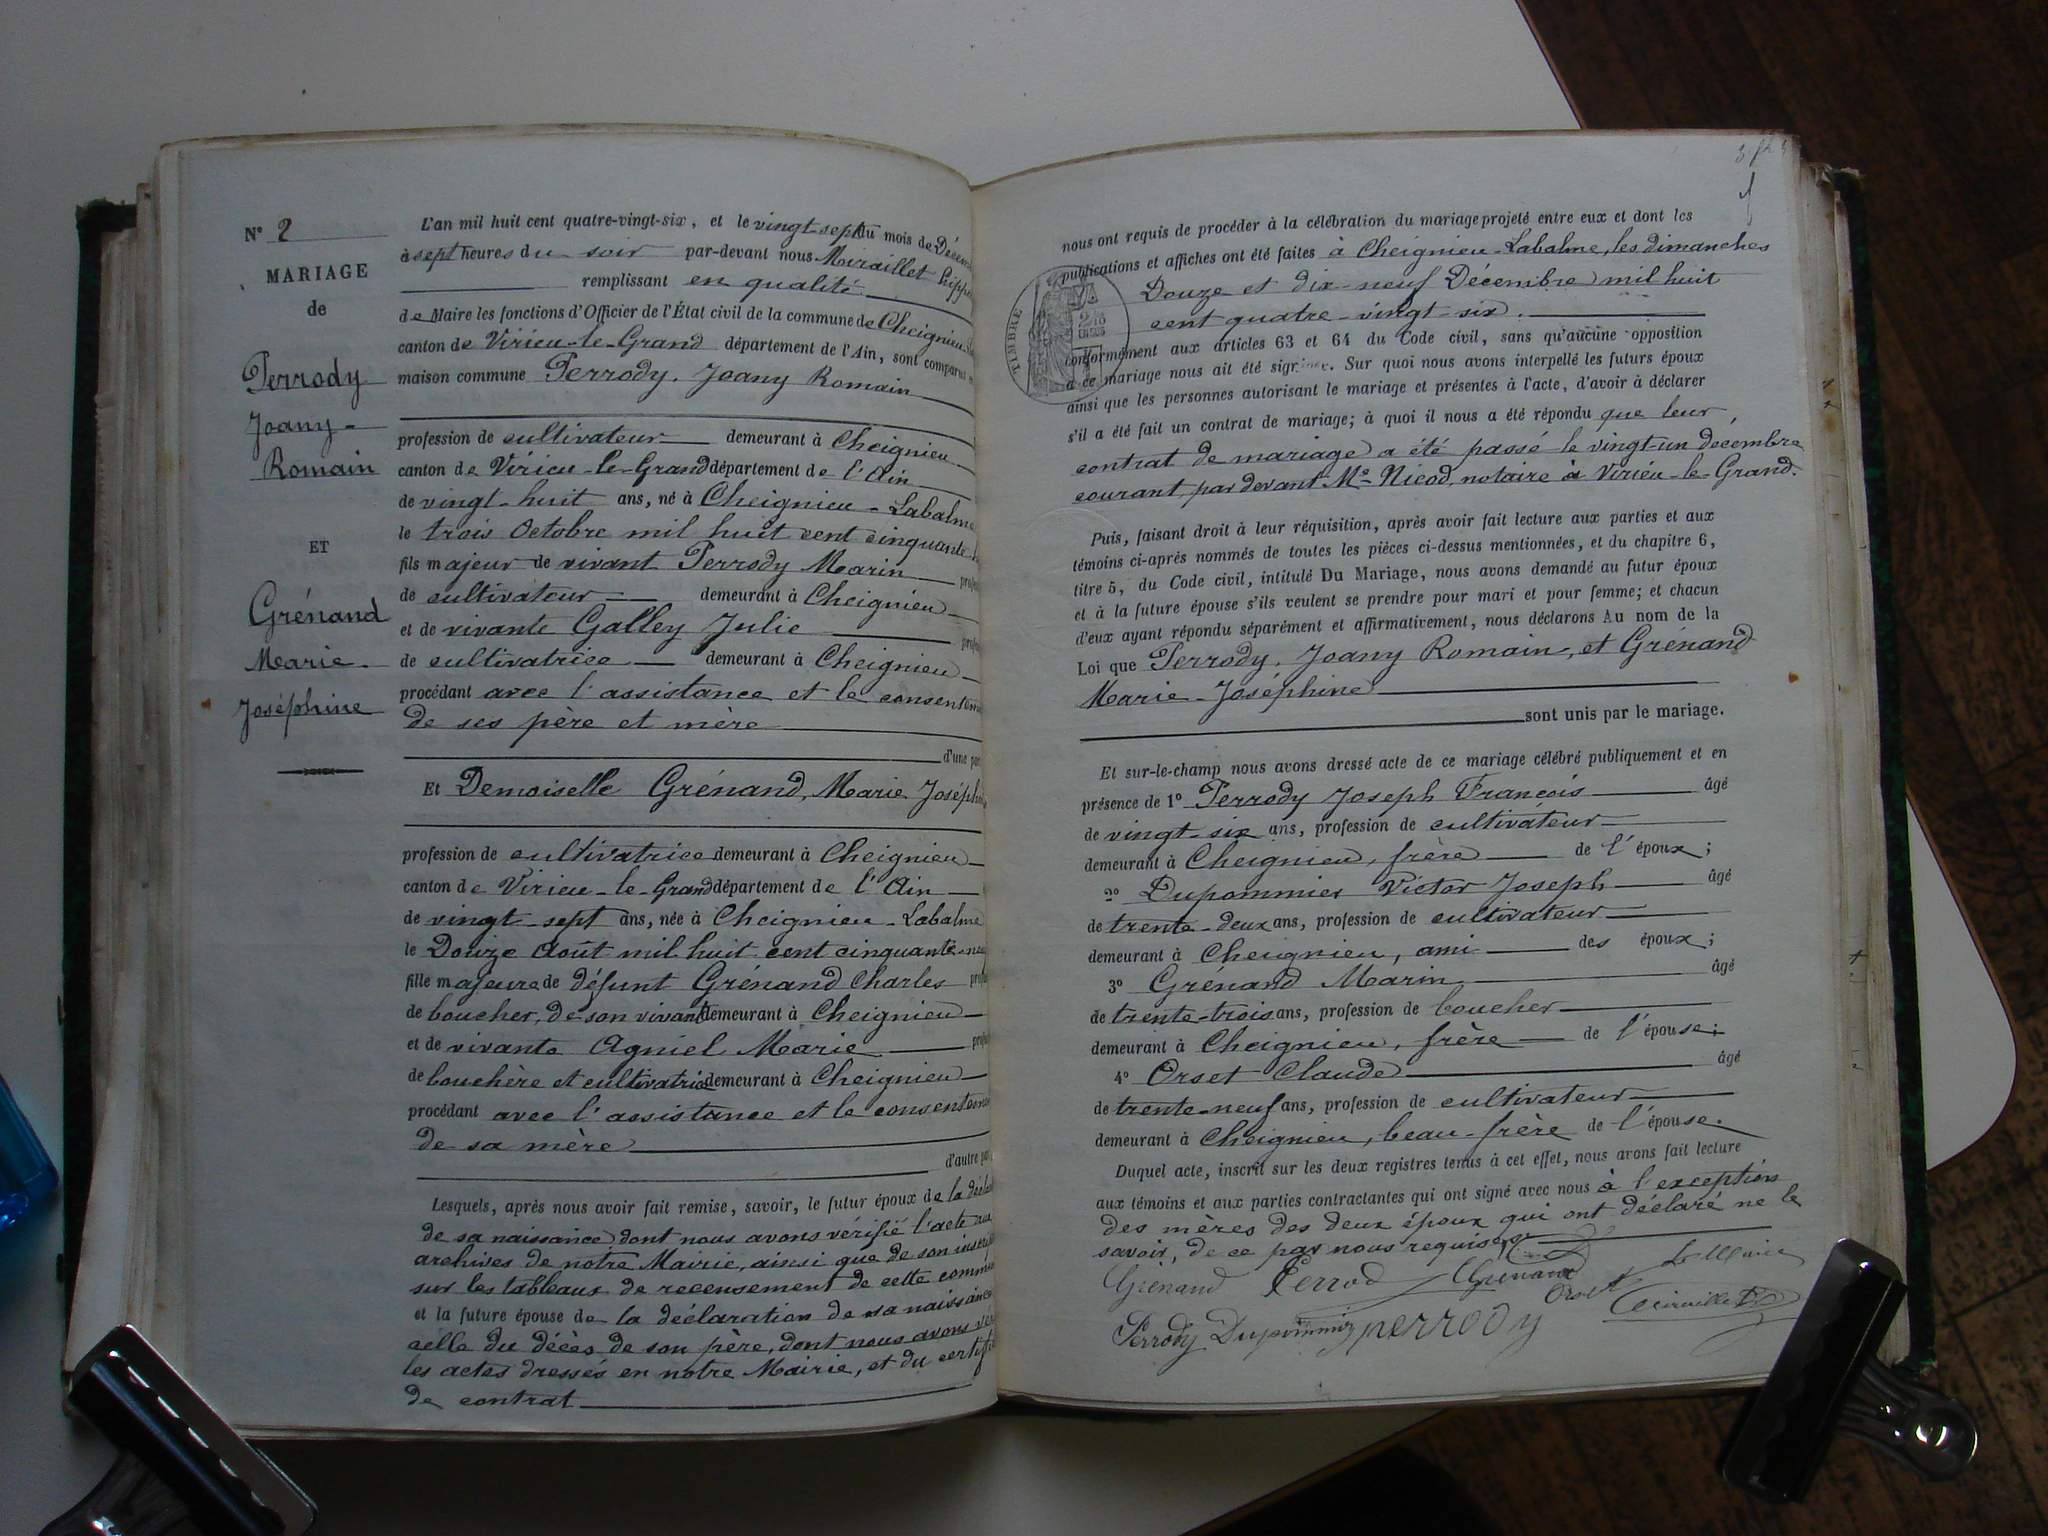 N° 2
MARIAGE
de
Perrody
Joany
Romain
ET
Grénand
Marie
Joséphine
L'an mil huit cent quatre-vingt-six, et le vingt-sept du mois de
à sept heures du soir par-devant nous
remplissant en qualité
de Maire les fonctions d'Officier de l'État civil de la commune de Cheignieu
canton de Virieu-le-Grand département de l'Ain, sont comparus
maison commune Perrody, Joany Romain
profession de cultivateur demeurant à Cheignieu
canton de Virieu-le-Grand département de l'Ain
de vingt-huit ans, né à Cheignieu-Labalme
le trois Octobre mil huit cent cinquante
fils majeur de vivant Perrody Marin
de cultivateur demeurant à Cheignieu
et de vivante Galley Julie
de cultivatrice demeurant à Cheignieu
procédant avec l'assistance et le
de ses père et mère
d'une
Et Demoiselle Grénand, Marie
profession de cultivatrice demeurant à Cheignieu
canton de Virieu-le-Grand département de l'Ain
de vingt-sept ans, née à Cheignieu-Labalme
le Douze Août mil huit cent cinquante
fille majeure de défunt Grénand Charles
de boucher, de son vivant demeurant à Cheignieu
et de vivante Agniel Marie
de bouchère et cultivatrice demeurant à Cheignieu
procédant avec l'assistance et le
de sa mère
d'autre
Lesquels, après nous avoir fait remise, savoir, le futur époux de la
de sa naissance dont nous avons vérifié l'acte aux
archives de notre Mairie, ainsi que de son
sur les tableaux de recensement de cette
et la future épouse de la déclaration de sa naissance
celle du décès de son père, dont nous avons
les actes dressés en notre Mairie, et du
de contrat
nous ont requis de procéder à la célébration du mariage projeté entre eux et dont les
publications et affiches ont été faites à Cheignieu-Labalme, les dimanches
Douze et dix-neuf Décembre mil huit
cent quatre-vingt-six.
TIMBRE
conformément aux articles 63 et 64 du Code civil, sans qu'aucune opposition
à ce mariage nous ait été signifiée. Sur quoi nous avons interpellé les futurs époux
ainsi que les personnes autorisant le mariage et présentes à l'acte, d'avoir à déclarer
s'il a été fait un contrat de mariage; à quoi il nous a été répondu que leur
contrat de mariage a été passé le vingt-un décembre
courant, par devant Me Nicod, notaire à Virieu-le-Grand.
Puis, faisant droit à leur réquisition, après avoir fait lecture aux parties et aux
témoins ci-après nommés de toutes les pièces ci-dessus mentionnées, et du chapitre 6,
titre 5, du Code civil, intitulé Du Mariage, nous avons demandé au futur époux
et à la future épouse s'ils veulent se prendre pour mari et pour femme; et chacun
d'eux ayant répondu séparément et affirmativement, nous déclarons Au nom de la
Loi que Perrody, Joany Romain, et Grénand
Marie-Joséphine
sont unis par le mariage.
Et sur-le-champ nous avons dressé acte de ce mariage célébré publiquement et en
présence de 1° Perrody Joseph François âgé
de vingt-six ans, profession de cultivateur
demeurant à Cheignieu, frère de l'époux;
2° Dupommier Victor Joseph âgé
de trente-deux ans, profession de cultivateur
demeurant à Cheignieu, ami des époux;
3° Grénand Marin âgé
de trente-trois ans, profession de boucher
demeurant à Cheignieu, frère de l'épouse;
4° Orset Claude âgé
de trente-neuf ans, profession de cultivateur
demeurant à Cheignieu, beau-frère de l'épouse.
Duquel acte, inscrit sur les deux registres tenus à cet effet, nous avons fait lecture
aux témoins et aux parties contractantes qui ont signé avec nous à l'exception
des mères des deux époux qui ont déclaré ne le
savoir, de ce par nous requises
Grénand Perrod Grénand Orset Le Maire
Perrody Dupommier perrody